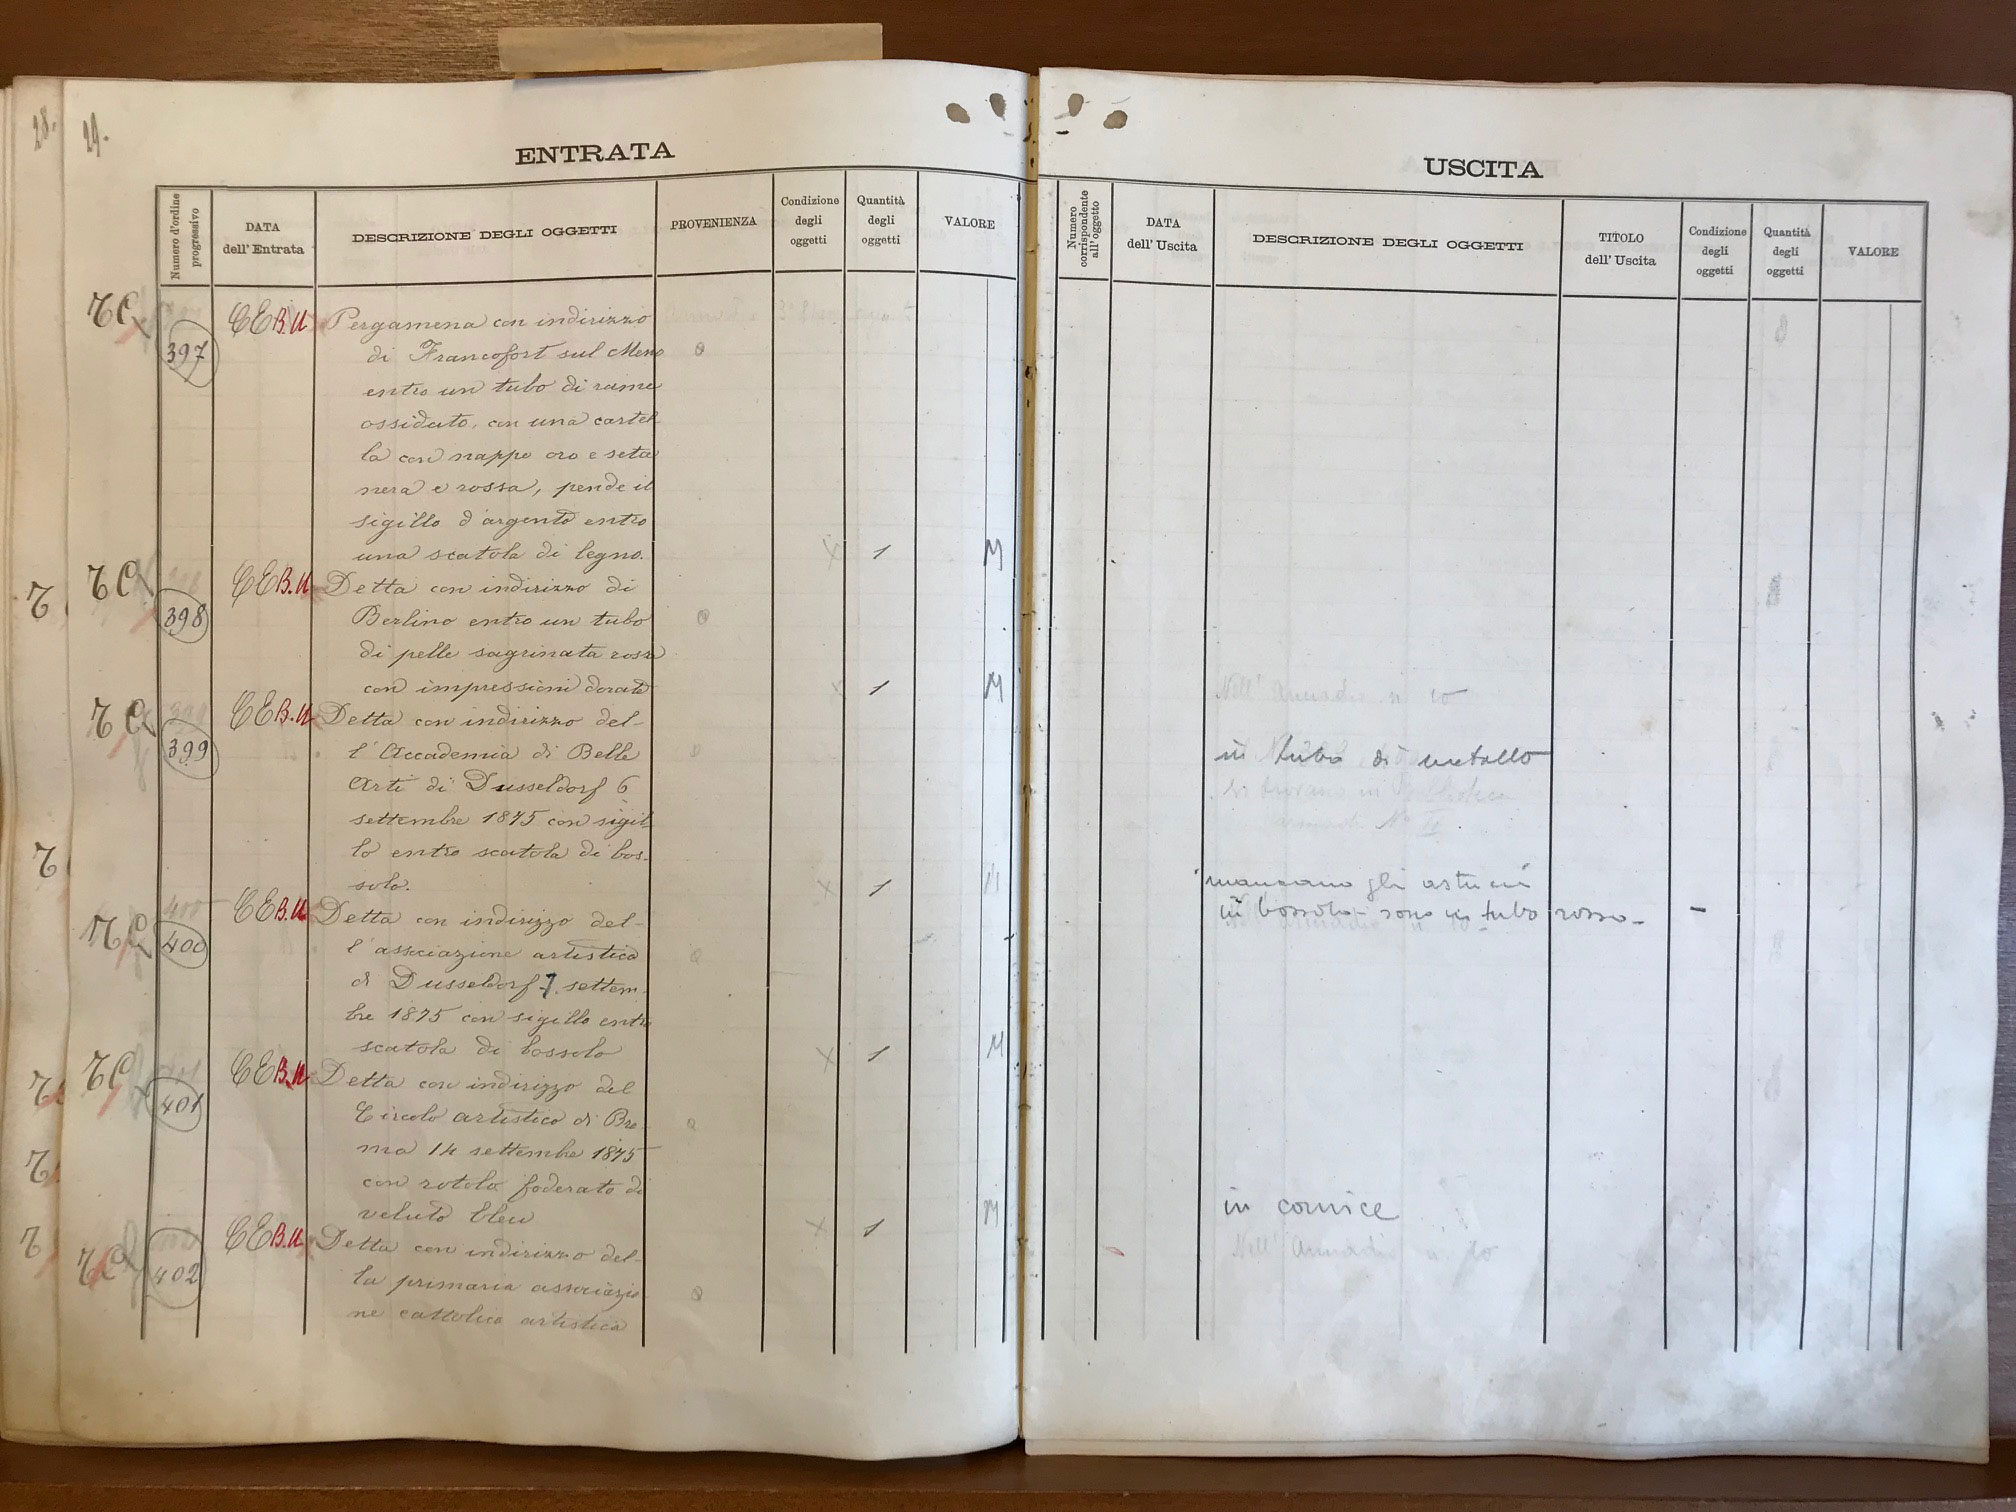 28.
29.
ENTRATA
Numero d'ordine progressivo
DATA dell'Entrata
DESCRIZIONE DEGLI OGGETTI
PROVENIENZA
Condizione degli oggetti
Quantità degli oggetti
VALORE
397
CEB.U
Pergamena con indirizzo
di Francofort sul Meno
entro un tubo di rame
ossidato, con una cartel
la con nappo oro e seta
nera e rossa, pende il
sigillo d'argento entro
una scatola di legno. 1 M
398
CEB.U
Detta con indirizzo di
Berlino entro un tubo
di pelle sagrinata rossa
con impressioni dorate 1 M
399
CEB.U
Detta con indirizzo del-
l'Accademia di Belle
Arti di Dusseldorf 6
settembre 1875 con sigil
lo entro scatola di bos-
solo. 1 M
400
CEB.U
Detta con indirizzo del-
l'associazione artistica
di Dusseldorf 7. settem-
bre 1875 con sigillo entro
scatola di bossolo 1 M
401
CEB.U
Detta con indirizzo del
Circolo artistico di Bre
ma 14 settembre 1875
con rotolo foderato di
veluto bleu 1 M
402
CEB.U
Detta con indirizzo del-
la primaria associazio
ne cattolica artistica
USCITA
Numero corrispondente all'oggetto
DATA dell'Uscita
DESCRIZIONE DEGLI OGGETTI
TITOLO dell'Uscita
Condizione degli oggetti
Quantità degli oggetti
VALORE
Nell'Armadio n. 10
in tubo di metallo
mancano gli astucci
in bossolo - sono in tubo rosso -
in cornice
Nell'Armadio n. 10